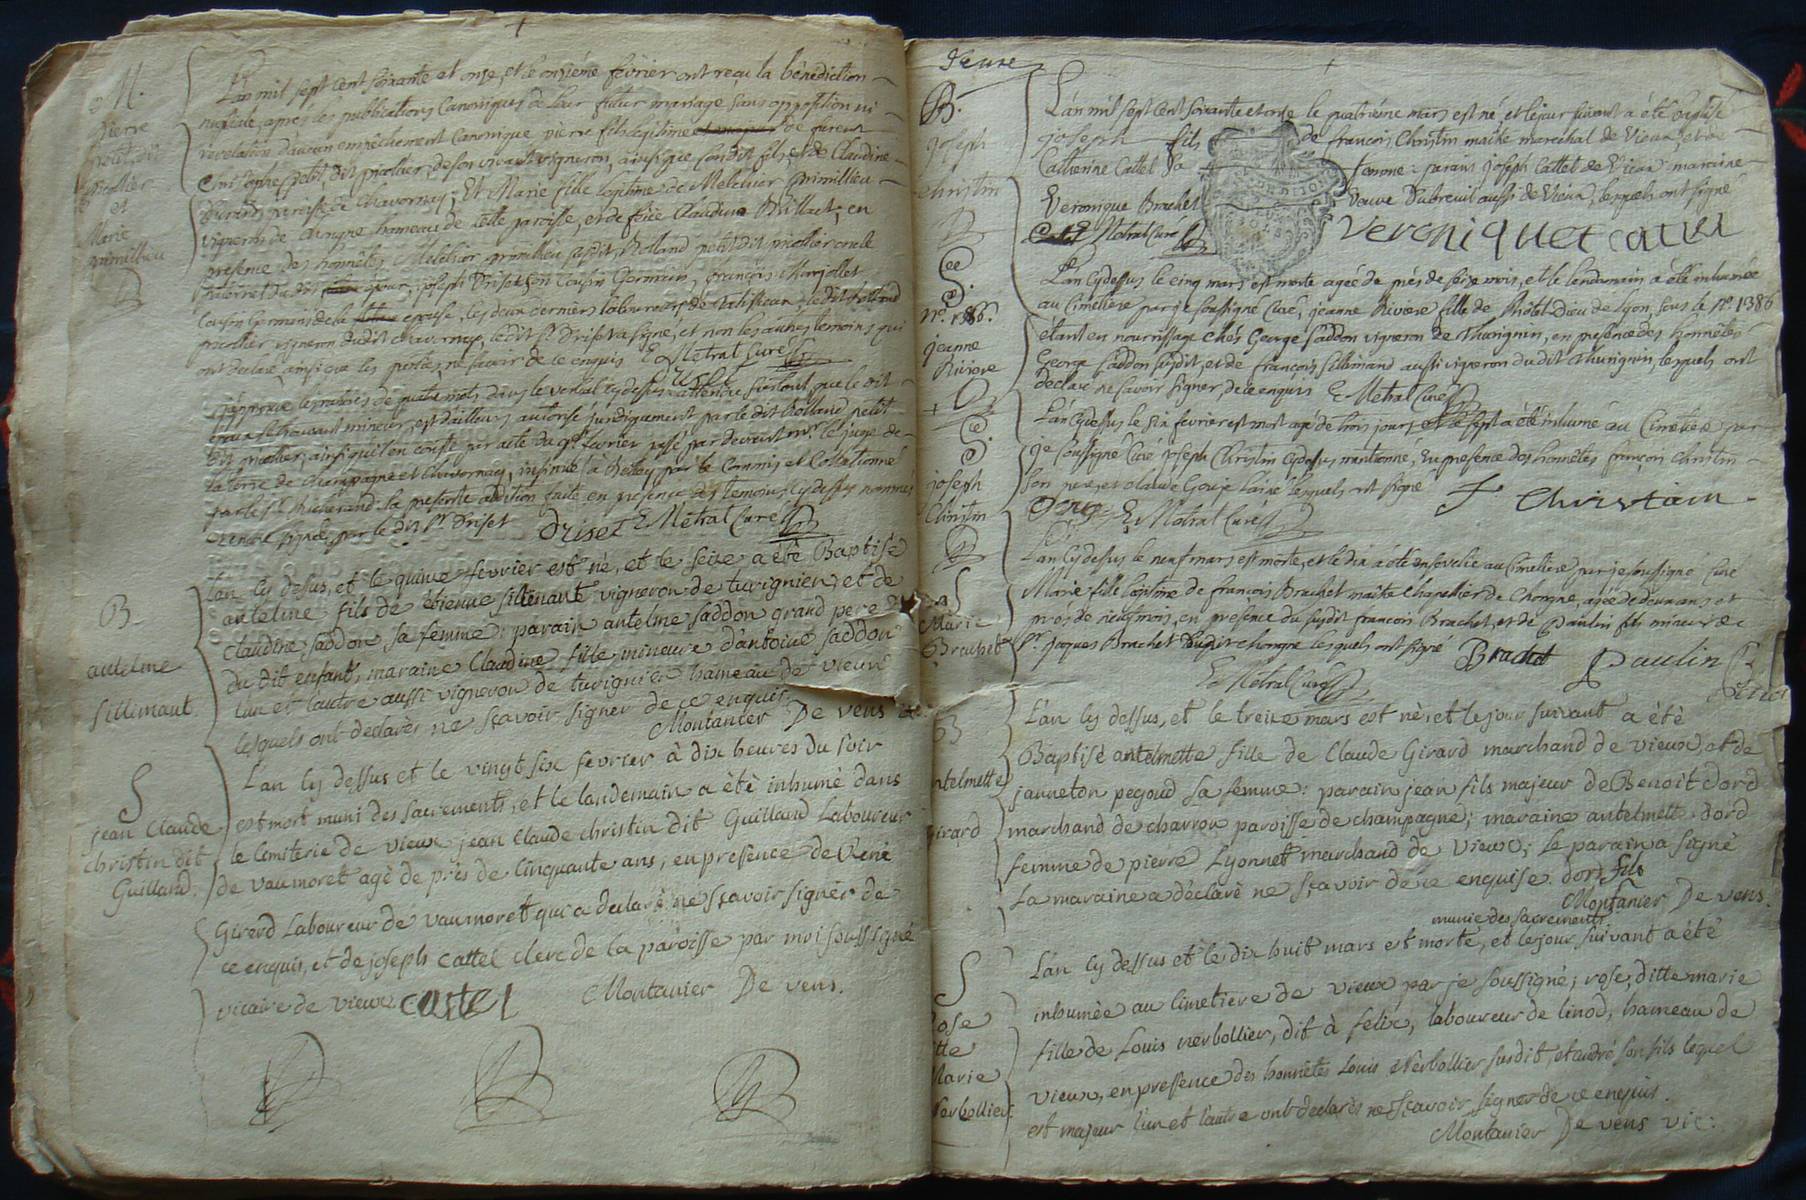 M.
Pierre
petit, dit
picollier
et
Marie
primillieu
L'an mil sept cent soixante et onze, et le onzième février ont reçu la bénédiction
nuptiale, après les publications canoniques de leur futur mariage sans opposition ni
révélation d'aucun empêchement canonique pierre fils légitime de
petit, dit picollier, de son vivant vigneron, ainsi que son dit fils, et de Claudine
paroisse de Chavornay; Et Marie fille légitime de Melchior primillieu
vigneron de Chongne hameau de cette paroisse, et de feue Claudine Brillat; en
présence des honnêtes Melchior primillieu susdit, Rolland petit dit picollier oncle
paternel du dit époux, joseph Driset son Cousin Germain, françois Marjollet
Cousin Germain de la épouse, les deux derniers laboureurs de ledit Rolland
picollier vigneron dudit chavornay, ledit Sr. Driset a signé, et non les autres temoins qui
ont declaré, ainsi que les parties, ne savoir de ce enquis E Metral Curé
j'approuve les ratures de quatre mots dans le verbal cy dessus attendu surtout que le dit
époux se trouvant mineur, est d'ailleurs autorisé juridiquement par le dit Rolland petit
dit picollier, ainsi qu'il en conste par acte du février passé par devant mr. le juge de
la terre de Champagne et Chavornay, insinué à Belley par le Commis et Collationné
par le Sr. Richerand la presente addition faite en présence des temoins cy dessus nommés
signée par le dit Sr. Driset Driset E Metral Curé
B
antelme
Sillimant.
L'an cy dessus, et le quinze fevrier est né, et le seize a été Baptisé
antelme fils de etienne sillimant vigneron de turignien, et de
claudine saddon sa femme: parain antelme saddon grand pere
du dit enfant, maraine Claudine fille mineure d'antoine saddon
l'un et l'autre aussi vigneron de turignien hameau de vieux
lesquels ont declarés ne sçavoir signer de ce enquis
Montanier De vens
S
jean Claude
christin dit
Guilland.
L'an cy dessus et le vingt six fevrier à dix heures du soir
est mort muni des sacrements, et le landemain a été inhumé dans
le cemiterie de vieux jean claude christin dit Guilland Laboureur
de vaumoret agé de près de cinquante ans, en pressence de René
Girerd Laboureur de vaumoret qui a declaré ne sçavoir signer de
ce enquis, et de joseph cattel clerc de la paroisse par moi soussigné
vicaire de vieux. catel Montanier De vens.
B.
joseph
christin
L'an mil sept cent soixante et onze le quatrième mars est né, et le jour suivant a été baptisé
joseph fils de françois Christin maître maréchal de Vieux, et de
Catherine Cattel sa femme: parain joseph Cattel de Vieux maraine
Veronique Brachet Veuve Dubreuil aussi de Vieux, lesquels ont signé
E Metral Curé Veroniquet catel
S.
no. 1386.
jeanne
Riviere
L'an cy dessus le cinq mars est morte agée de près de seize mois, et le lendemain a été inhumée
au Cimetière par je soussigné Curé, jeanne Riviere fille de l'hôtel Dieu de Lyon, sous le no. 1386
étant en nourrissage chés George saddon vigneron de Thurignin, en présence des honnêtes
George saddon susdit, et de françois sillimand aussi vigneron du dit Thurignin, lesquels ont
declaré ne savoir signer de ce enquis E Metral Curé
S.
joseph
Christin
L'an cy dessus le six fevrier est mort agé de trois jours et le sept a été inhumé au Cimetière par
je soussigné Curé joseph Christin cy dessus mentionné, En presence des honnêtes françois christin
son pere, et claude Gouje l'ainé lesquels ont signé F Christain
E Metral Curé
S
Marie
Brachet
L'an cy dessus le neuf mars est morte, et le dix a été ensevelie au Cimetière par je soussigné Curé
Marie fille légitime de françois Brachet maître chapellier de Chongne, agée de deux ans et
près de neuf mois, en presence du susdit françois Brachet, et de Paulin fils mineur de
Sr. jaques Brachet dudit chongne lesquels ont signé Brachet Paulin
E Metral Curé
B
antelmette
girard
L'an cy dessus, et le treize mars est né, et le jour suivant a été
Baptisé antelmette fille de Claude Girard marchand de vieux, et de
janneton pegoud sa femme: parain jean fils majeur de Benoit Dord
marchand de charron paroisse de champagne; maraine antelmette Dord
femme de pierre Lyonnet marchand de vieux; le parain a signé
La maraine a déclaré ne sçavoir de ce enquise. dord fils
Montanier De vens.
S
Rose
ditte
Marie
Nerbollier.
munie des sacrements
L'an cy dessus et le dix huit mars est morte, et le jour suivant a été
inhumée au cimetiere de vieux par je soussigné; rose, ditte marie
fille de Louis nerbollier, dit à felix, laboureur de linod, hameau de
vieux, en pressence des honnêtes Louis Nerbollier susdit, et andré son fils lequel
est majeur l'un et l'autre ont declarés ne sçavoir signer de ce enquis.
Montanier De vens vic: